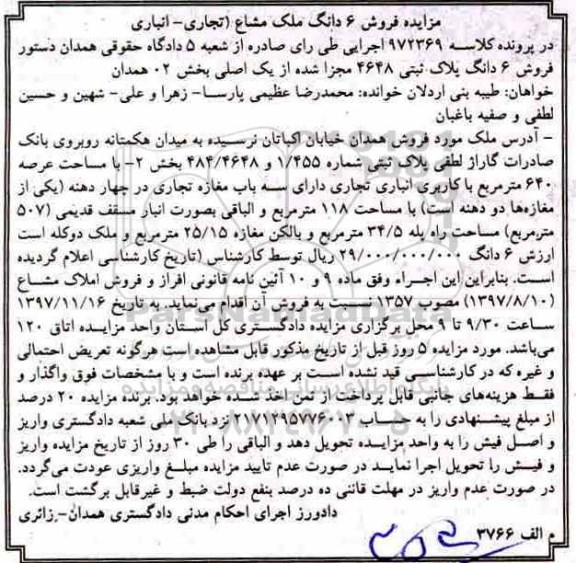 مزایده فروش ۶ دانگ ملک مشاع (تجاری- انباری
در پرونده کلاسه ۹۷۲۳۶۹ اجرایی طی رای صادره از شعبه ۵ دادگاه حقوقی همدان دستور
فروش ۶ دانگ پلاک ثبتی ۴۶۴۸ مجزا شده از یک اصلی بخش ۰۲ همدان
خواهان: طیبه بنی اردلان خوانده: محمدرضا عظیمی پارسا- زهرا و علی- شهین و حسین
لطفی و صفیه باغبان
- آدرس ملک مورد فروش همدان خیابان اکباتان نرسیده به میدان هکمتانه روبروی بانک
صادرات گاراژ لطفی پلاک ثبتی شماره ۱/۴۵۵ و ۴۸۴/۴۶۴۸ بخش ۲- با مساحت عرصه
۶۴۰ مترمربع با کاربری انباری تجاری دارای سه باب مغازه تجاری در چهار دهنه (یکی از
مغازه‌ها دو دهنه است) با مساحت ۱۱۸ مترمربع و الباقی بصورت انبار مسقف قدیمی (۵۰۷
مترمربع) مساحت راه پله ۳۴/۵ مترمربع و بالکن مغازه ۲۵/۱۵ مترمربع و ملک دوکله است
ارزش ۶ دانگ ۲۹/۰۰۰/۰۰۰/۰۰۰ ریال توسط کارشناس (تاریخ کارشناسی اعلام گردیده
است. بنابراین این اجراء وفق ماده ۹ و ۱۰ آئین نامه قانونی افراز و فروش املاک مشاع
(۱۳۹۷/۸/۱۰) مصوب ۱۳۵۷ نسبت به فروش آن اقدام می‌نماید. به تاریخ ۱۳۹۷/۱۱/۱۶
ساعت ۹/۳۰ تا ۹ محل برگزاری مزایده دادگستری کل استان واحد مزایده اتاق ۱۲۰
می‌باشد. مورد مزایده ۵ روز قبل از تاریخ مذکور قابل مشاهده است هرگونه تعریض احتمالی
و غیره که در کارشناسی قید نشده است بر عهده برنده است و با مشخصات فوق واگذار و
فقط هزینه‌های جانبی قابل پرداخت از ثمن اخذ شده خواهد بود. برنده مزایده ۲۰ درصد
از مبلغ پیشنهادی را به حساب ۲۱۷۱۲۹۵۷۷۶۰۰۲ نزد بانک ملی شعبه دادگستری واریز
و اصل فیش را به واحد مزایده تحویل دهد و الباقی را طی ۳۰ روز از تاریخ مزایده واریز
و فیش را تحویل اجرا نماید در صورت عدم تایید مزایده مبلغ واریزی عودت می‌گردد.
در صورت عدم واریز در مهلت قاننی ده درصد بنفع دولت ضبط و غیرقابل برگشت است.
دادورز اجرای احکام مدنی دادگستری همدان- زائری
م الف ۳۷۶۶